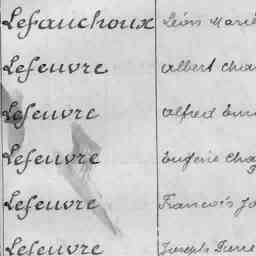 Lefauchoux Léon Marie
Lefeuvre Albert Cha
Lefeuvre Alfred Emi
Lefeuvre Eugène Cha
Lefeuvre François Jo
Lefeuvre Joseph Pierre